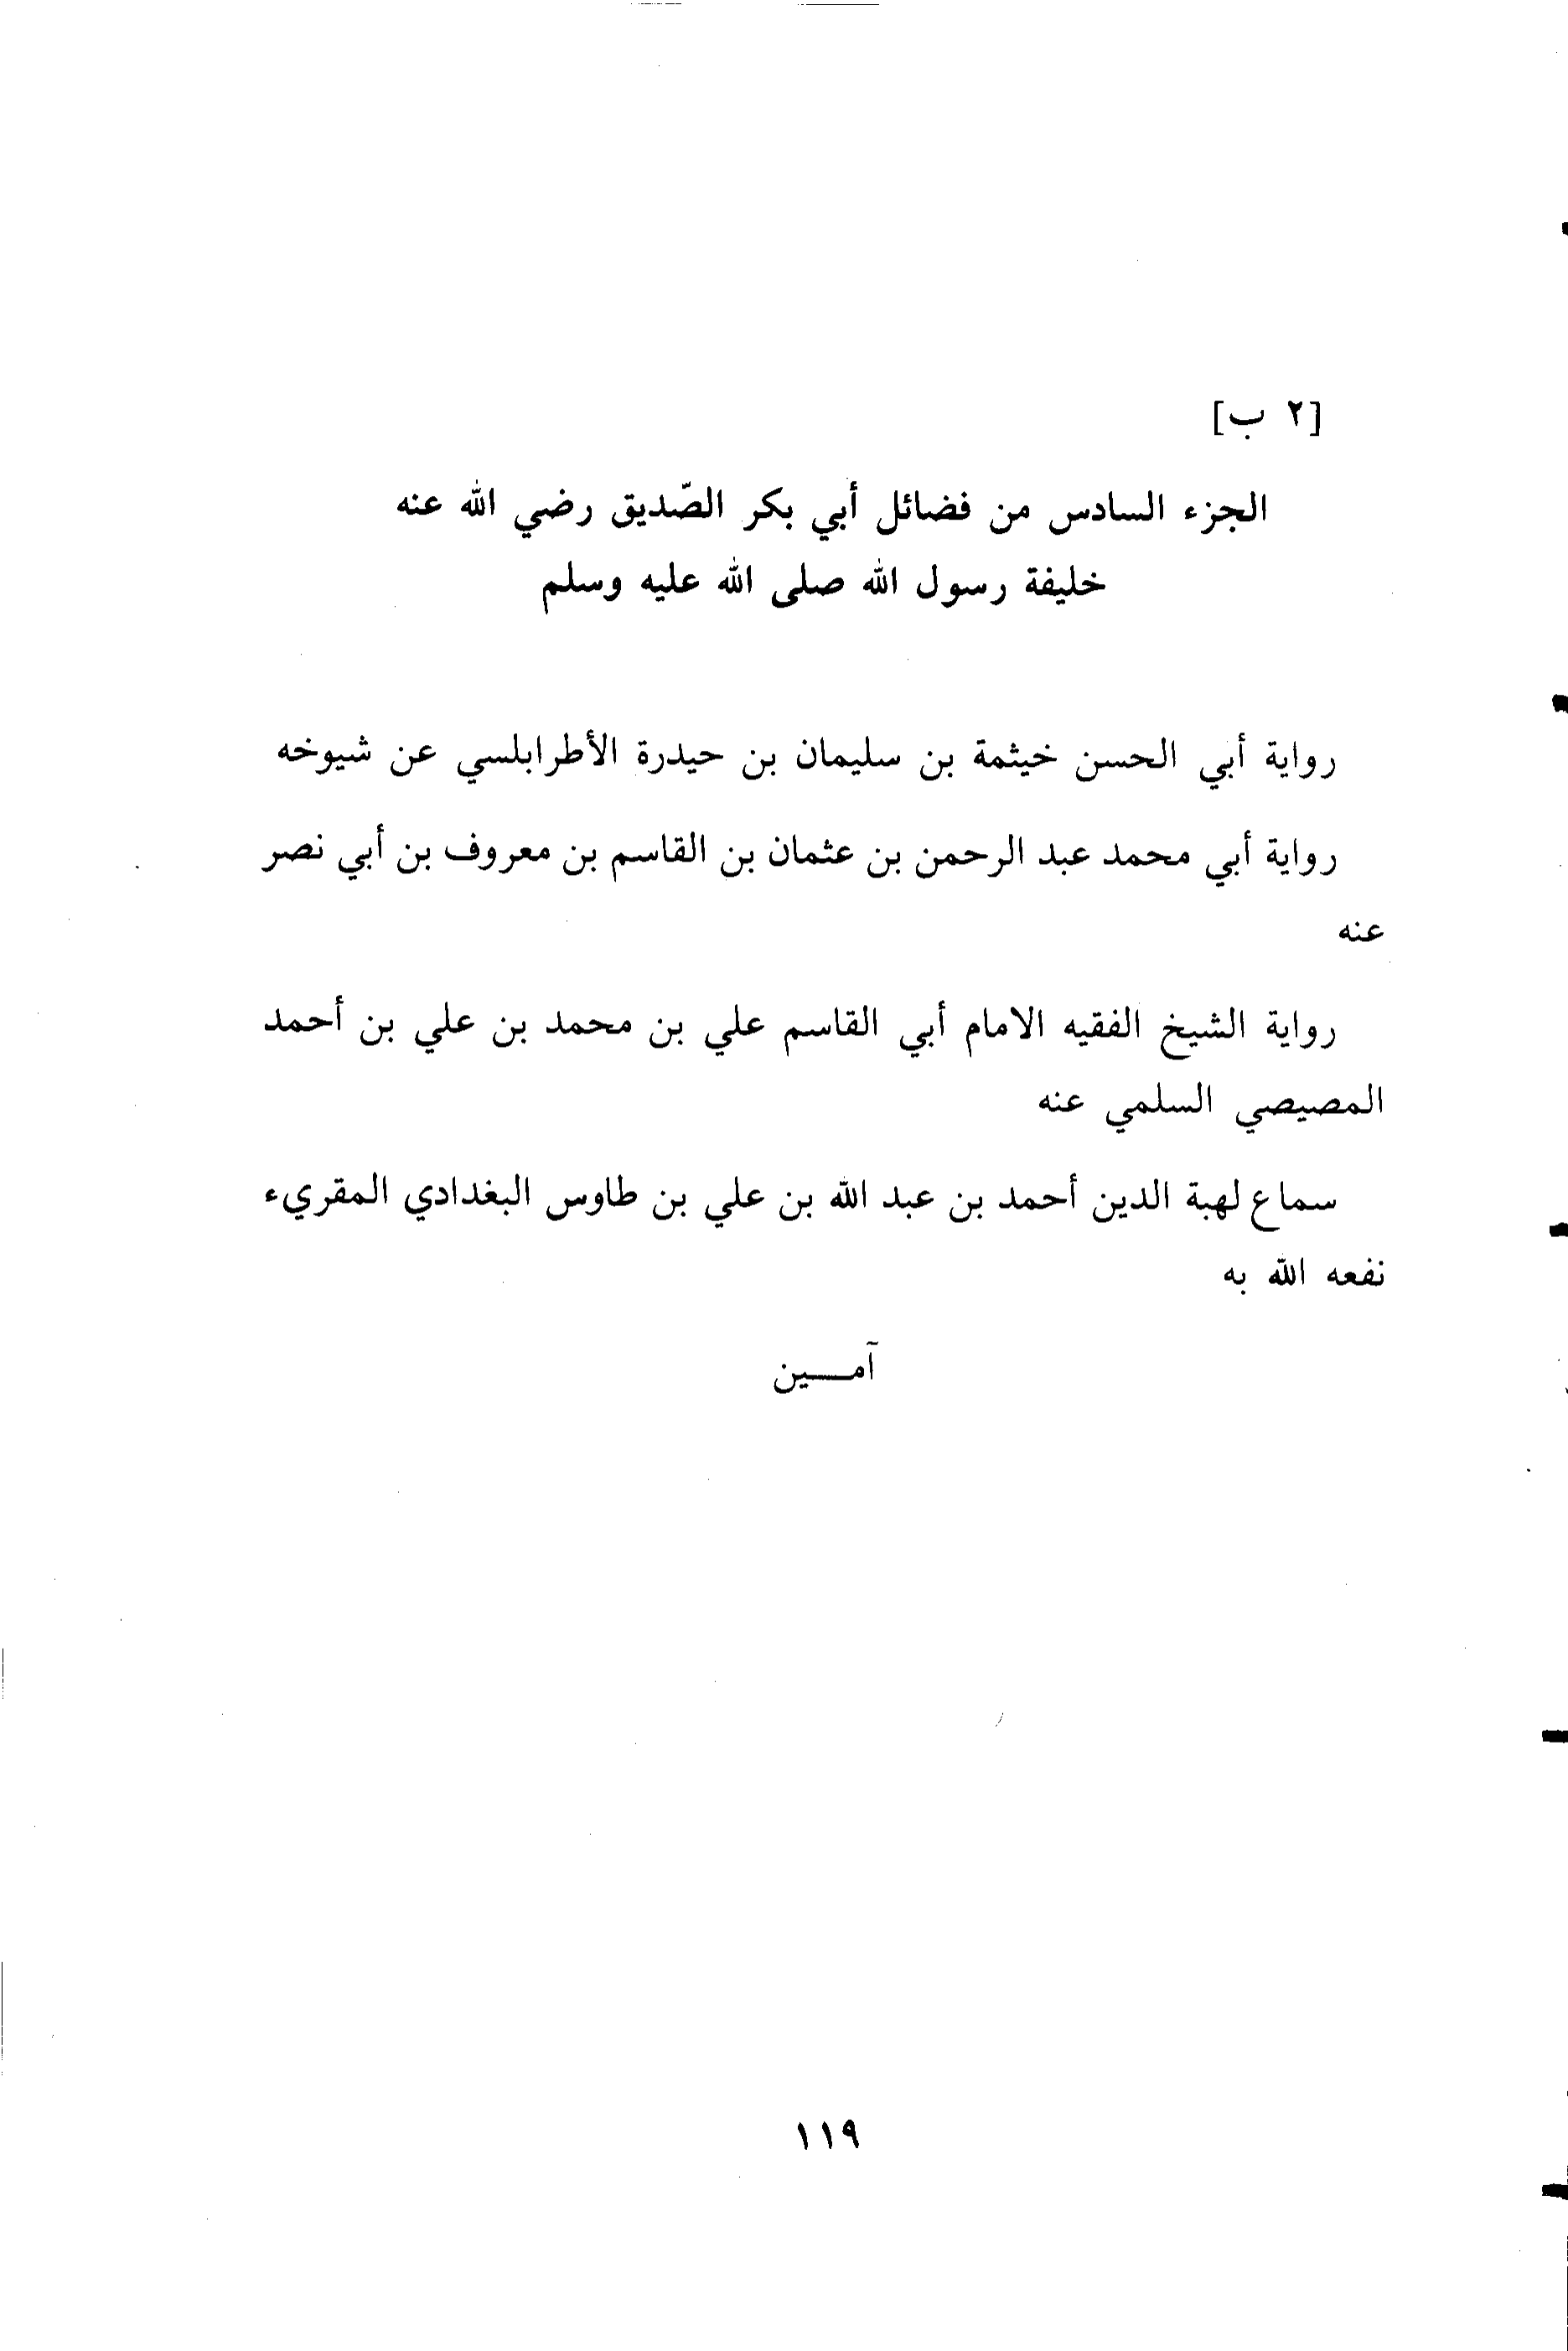 [٢ ب]
الجزء السادس من فضائل أبي بكر الصّديق رضي الله عنه
خليفة رسول الله صلى الله عليه وسلم
رواية أبي الحسن خيثمة بن سليمان بن حيدرة الأطرابلسي عن شيوخه
رواية أبي محمد عبد الرحمن بن عثمان بن القاسم بن معروف بن أبي نصر
عنه
رواية الشيخ الفقيه الامام أبي القاسم علي بن محمد بن علي بن أحمد
المصيصي السلمي عنه
سماع لهبة الدين أحمد بن عبد الله بن علي بن طاوس البغدادي المقريء
نفعه الله به
آمـــين
١١٩